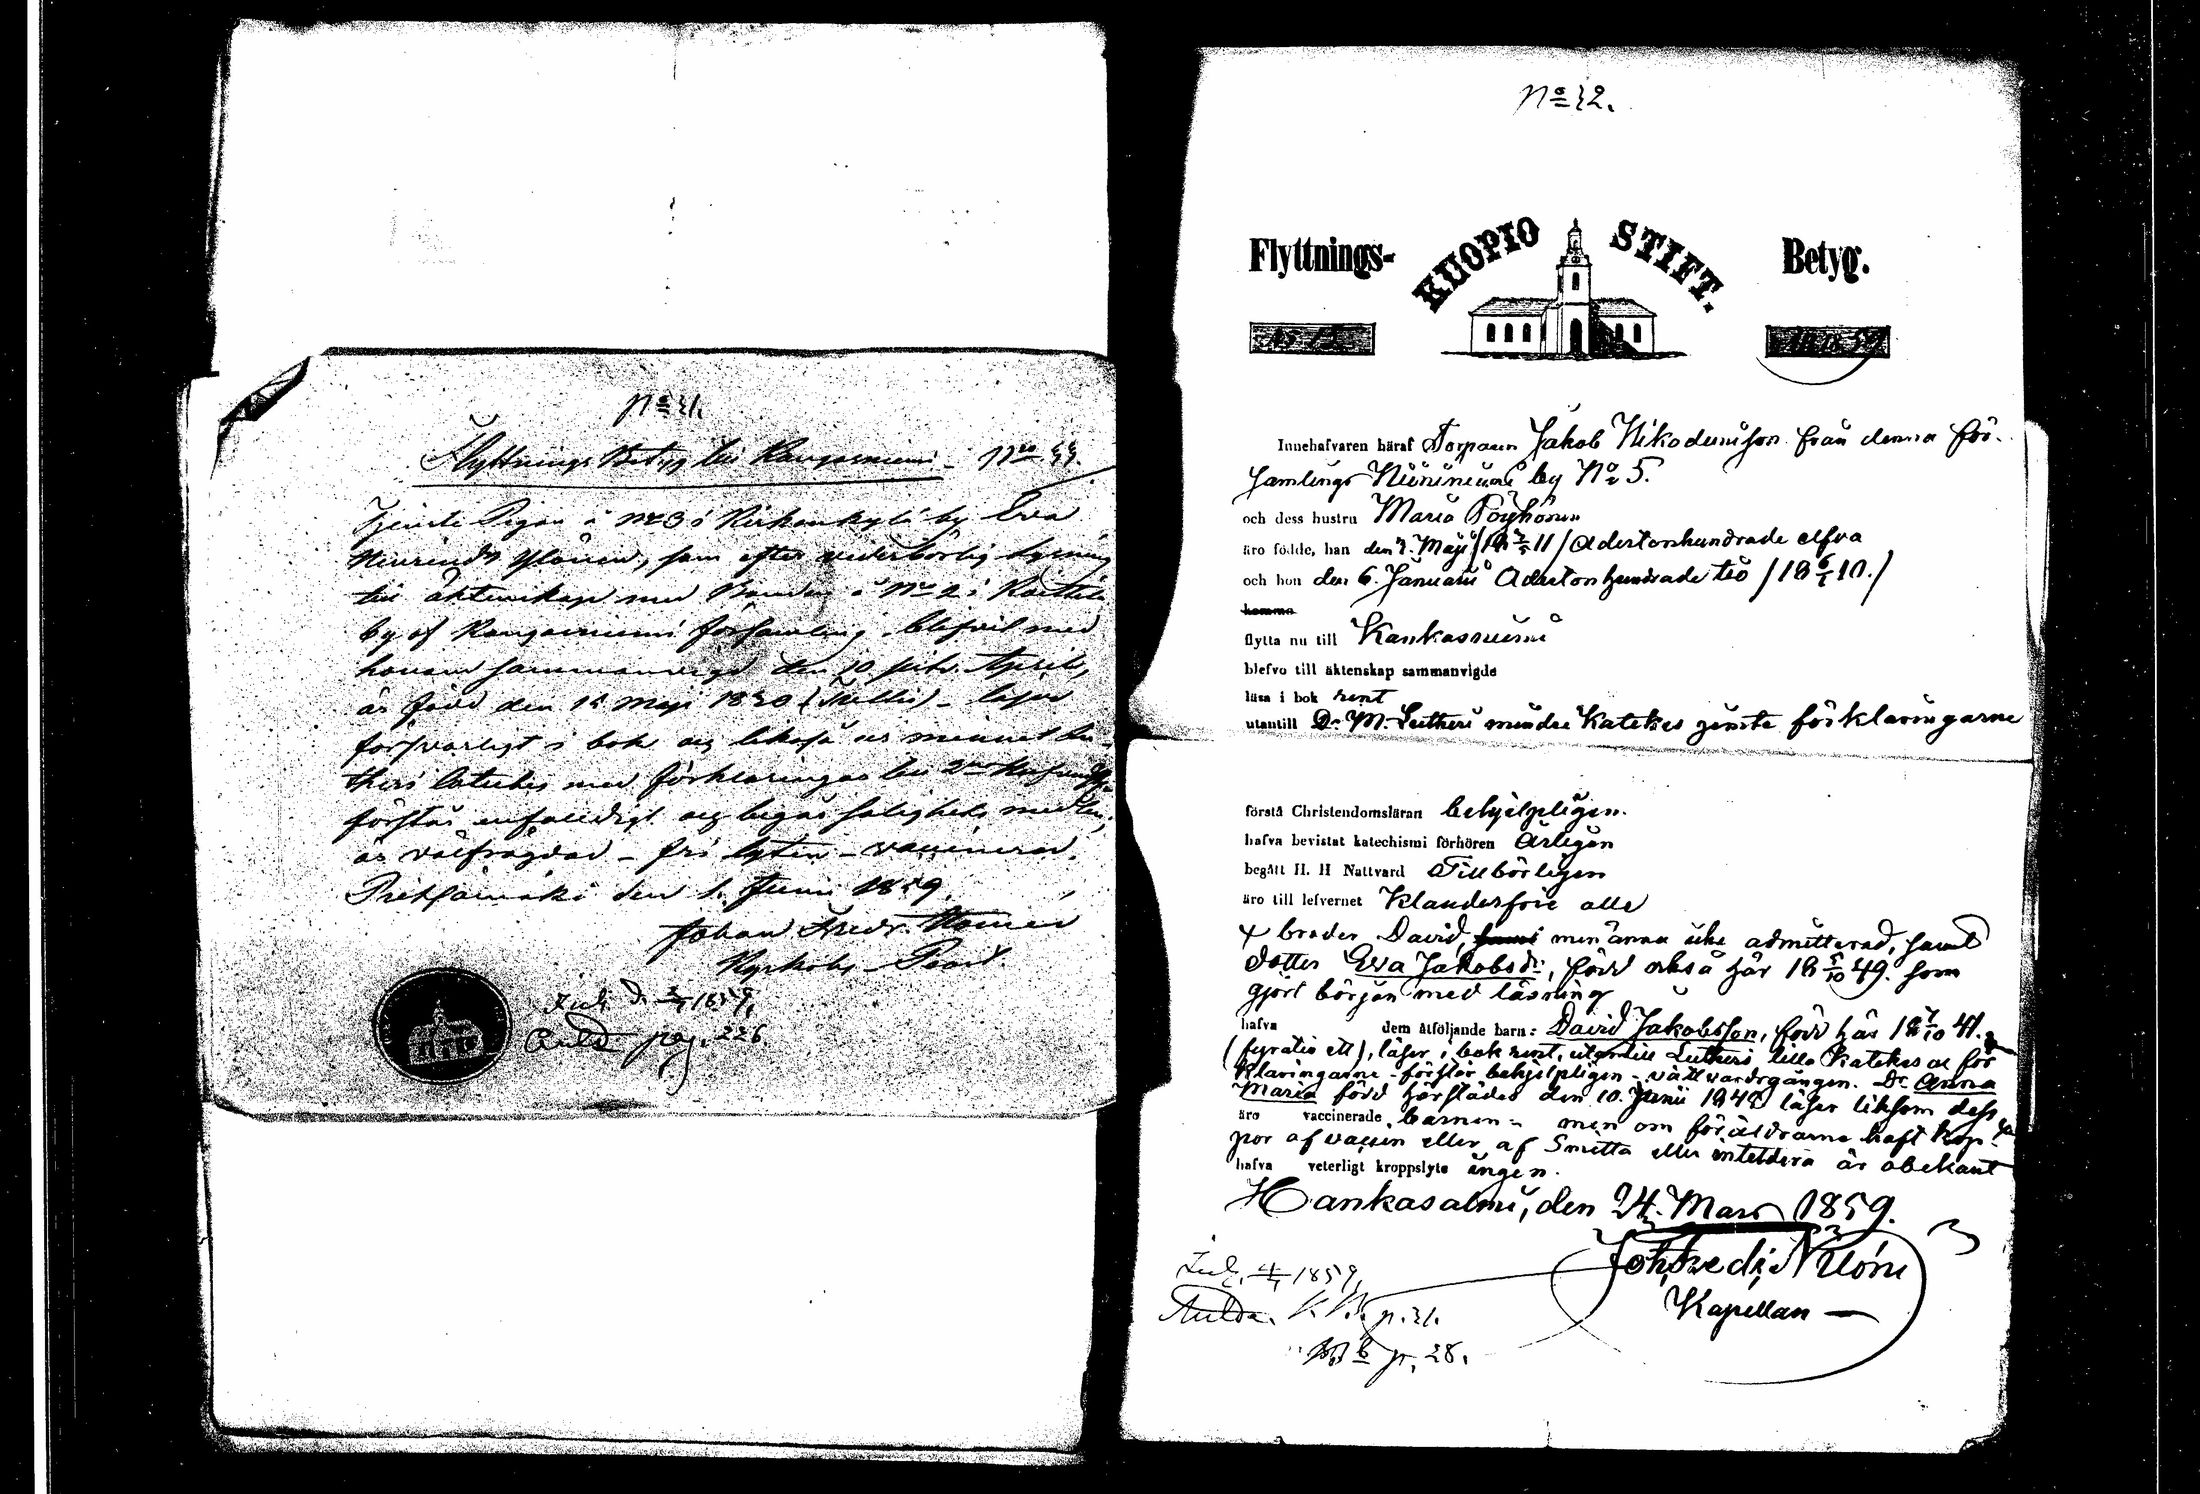 No 31.
Flyttnings Betyg till Kangasniemi No 33.
Tjenste Pigan å No 3 i Kirkonkylä by Eva
Ylönen, som efter vederbörlig lysning
till äktenskap med Bonden å No 2 i
by af Kangasniemi församling, blifvit med
honom sammanvigd den 10 April,
är född den 15 Maji 1830 - läser
försvarligt i bok och likaså ur minnet Lu-
theri Cateches med förklaringar till
förstår enfaldigt och begår salighets medlen,
är välfrägdad - fri lyten - vaccinerad.
Pieksämäki den 1. Junii 1859.
Johan Fredr.
Kyrkoh.
1859.
pag. 226
No 32.
Flyttnings- KUOPIO STIFT. Betyg.
Innehafvaren häraf Torparn Jakob Nikodemusson från denna för-
samlings Niininiemi by No 5.
och dess hustru Maria Pöyhönen
äro födde, han den 3. Maji /18 3/5 11/ Adertonhundrade elfva
och hon den 6. Januarii Adertonhundrade tio /18 6/1 10./
komma
flytta nu till Kankasniemi
blefvo till äktenskap sammanvigde
läsa i bok rent
utantill Dr M. Lutheri mindre Katekes jemte förklaringarne
förstå Christendomsläran behjelpligen.
hafva bevistat katechismi förhören Årligen
begått H. H Nattvard Tillbörligen
äro till lefvernet Klanderfrie alla
+ broder David, men ännu icke admitterad, samt
dotter Eva Jakobsdr, född också här 18 5/10 49. som
gjort början med läsning
hafva dem åtföljande barn: David Jakobsson, född här 18 7/10 41.
(fyratio ett), läser i bok rent, utantill Lutheri lilla Katekes o för
klaringarne - förstår behjelpligen - nattvardsgången. Dr Anna
Maria född härstädes den 10. Junii 1848 läser liksom dess
äro vaccinerade barnen - men om föräldrarne haft kop-
por af vaccin eller af Smitta eller intetdera är obekant
hafva veterligt kroppslyte ingen.
Hankasalmi, den 24. Mars 1859.
Joh. Fredr.
Kapellan
1859.
p. 31.
p. 28.